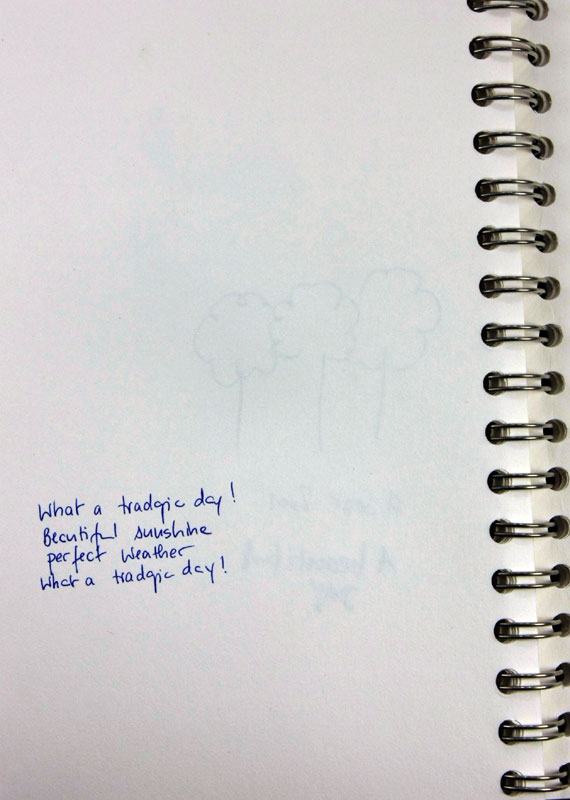 What a tradgic day!
Beautiful sunshine
perfect weather
What a tradgic day!